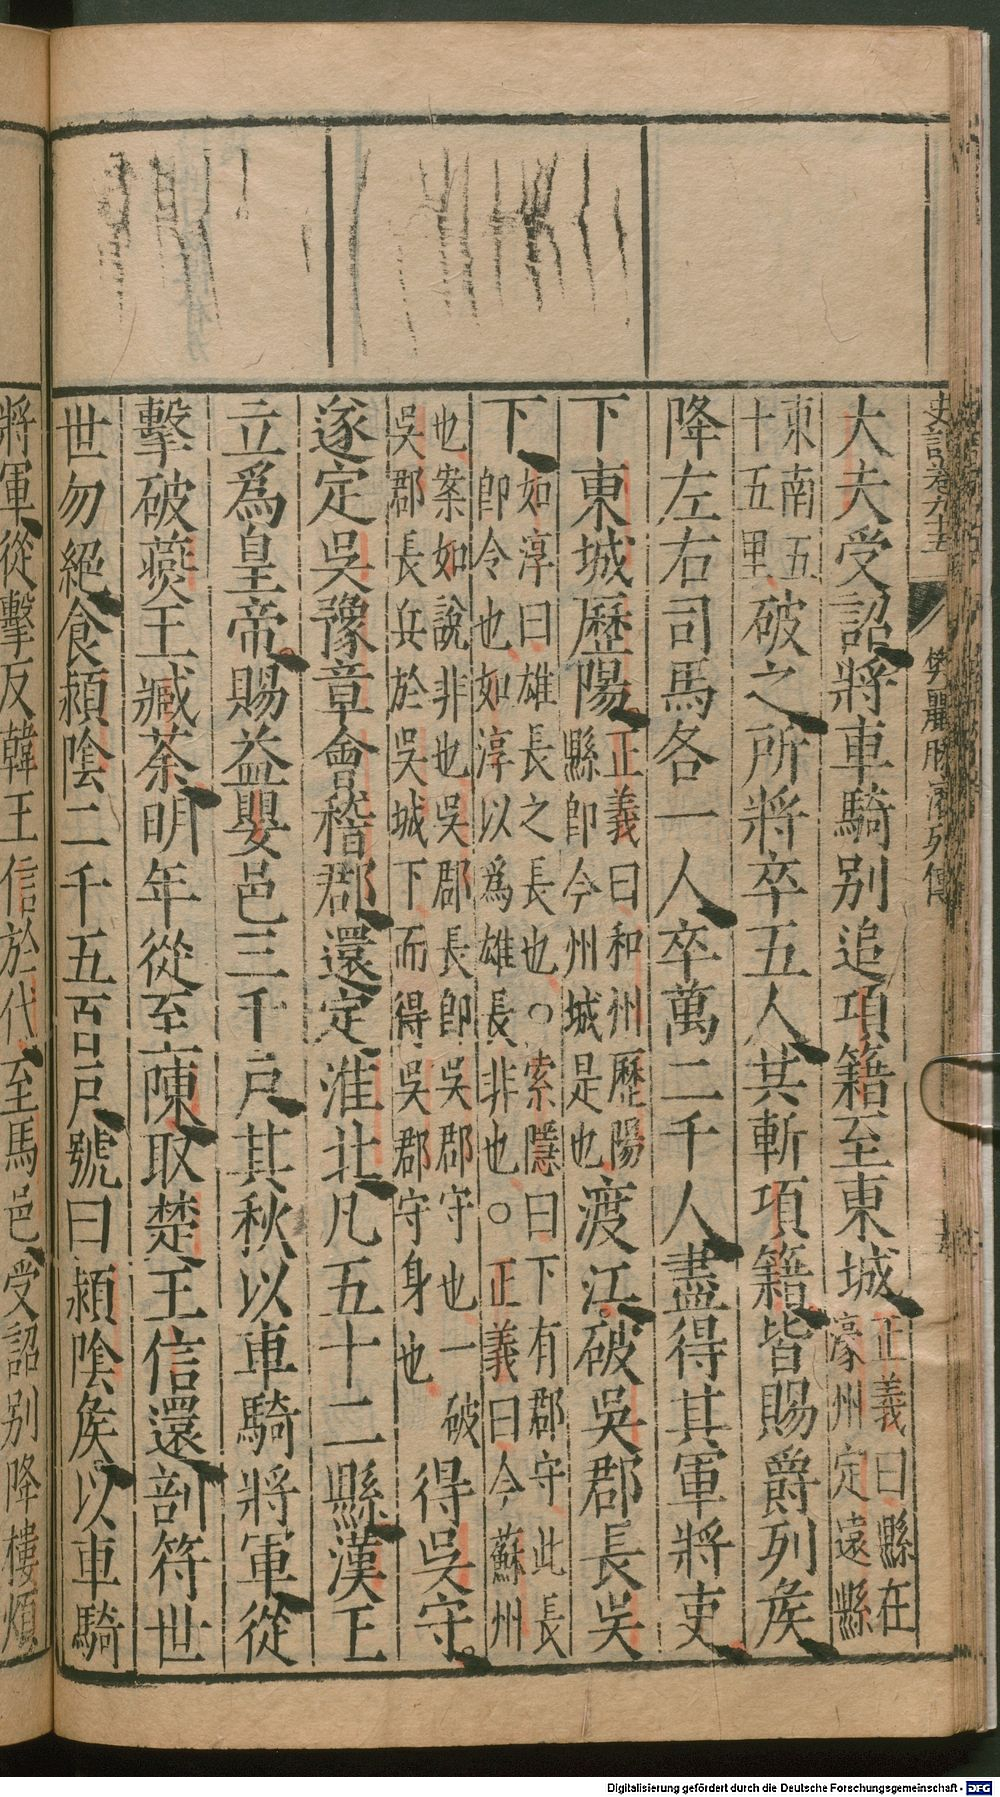 史記卷九十五 樊酈滕灌列傳
大夫受詔將車騎別追項籍至東城正義曰縣在
濠州定遠縣
東南五
十五里破之所將卒五人共斬項籍皆賜爵列矦
降左右司馬各一人卒萬二千人盡得其軍將吏
下東城歷陽正義曰和州歷陽
縣即今州城是也渡江破吳郡長吳
下如淳曰雄長之長也○索隱曰下有郡守此長
即令也如淳以爲雄長非也○正義曰今蘇州
也案如說非也吳郡長即吳郡守也一破
吳郡長兵於吳城下而得吳郡守身也得吳守
遂定吳豫章會稽郡還定淮北凡五十二縣漢王
立爲皇帝賜益嬰邑三千戶其秋以車騎將軍從
擊破燕王臧荼明年從至陳取楚王信還剖符世
世勿絕食潁陰二千五百戶號曰潁陰矦以車騎
將軍從擊反韓王信於代至馬邑受詔別降樓煩
Digitalisierung gefördert durch die Deutsche Forschungsgemeinschaft - DFG